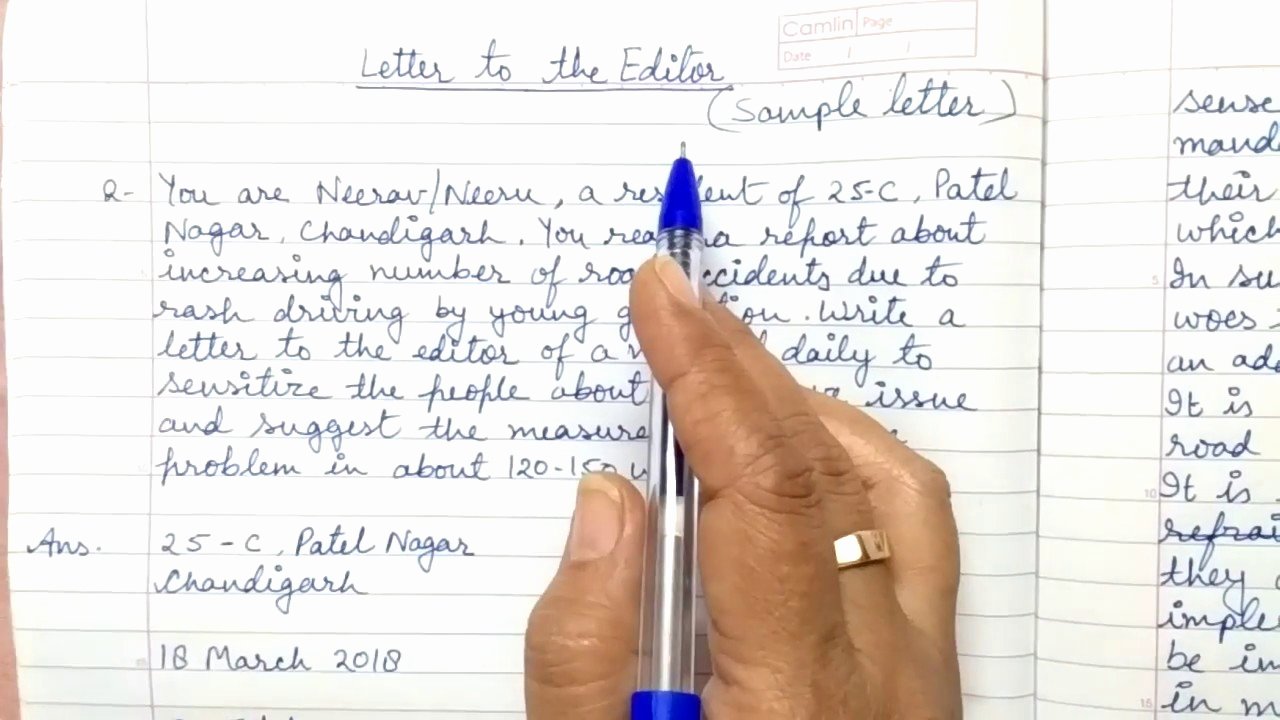 Camlin Page
Date / /
Letter to the Editor
(Sample letter)
Q- You are Neerav/Neeru, a resident of 25-C, Patel
Nagar, Chandigarh. You read a report about
increasing number of road accidents due to
rash driving by young generation. Write a
letter to the editor of a daily to
sensitize the people about issue
and suggest the measure
problem in about 120-150
Ans. 25-C, Patel Nagar
Chandigarh
18 March 2018
sense
their
which
5 In su
woes
an
It is
road
10 It is
they
be in
15 in m